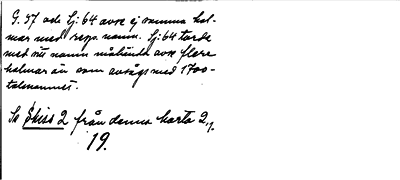 G. 57 och Lj: 64 avse ej samma hol-
mar med resp. namn. Lj: 64 torde
med sitt namn måhända avse flere
holmar än som avsågs med 1700-
talsnamnet.
Se Skiss 2 från denna karta 2,
19.